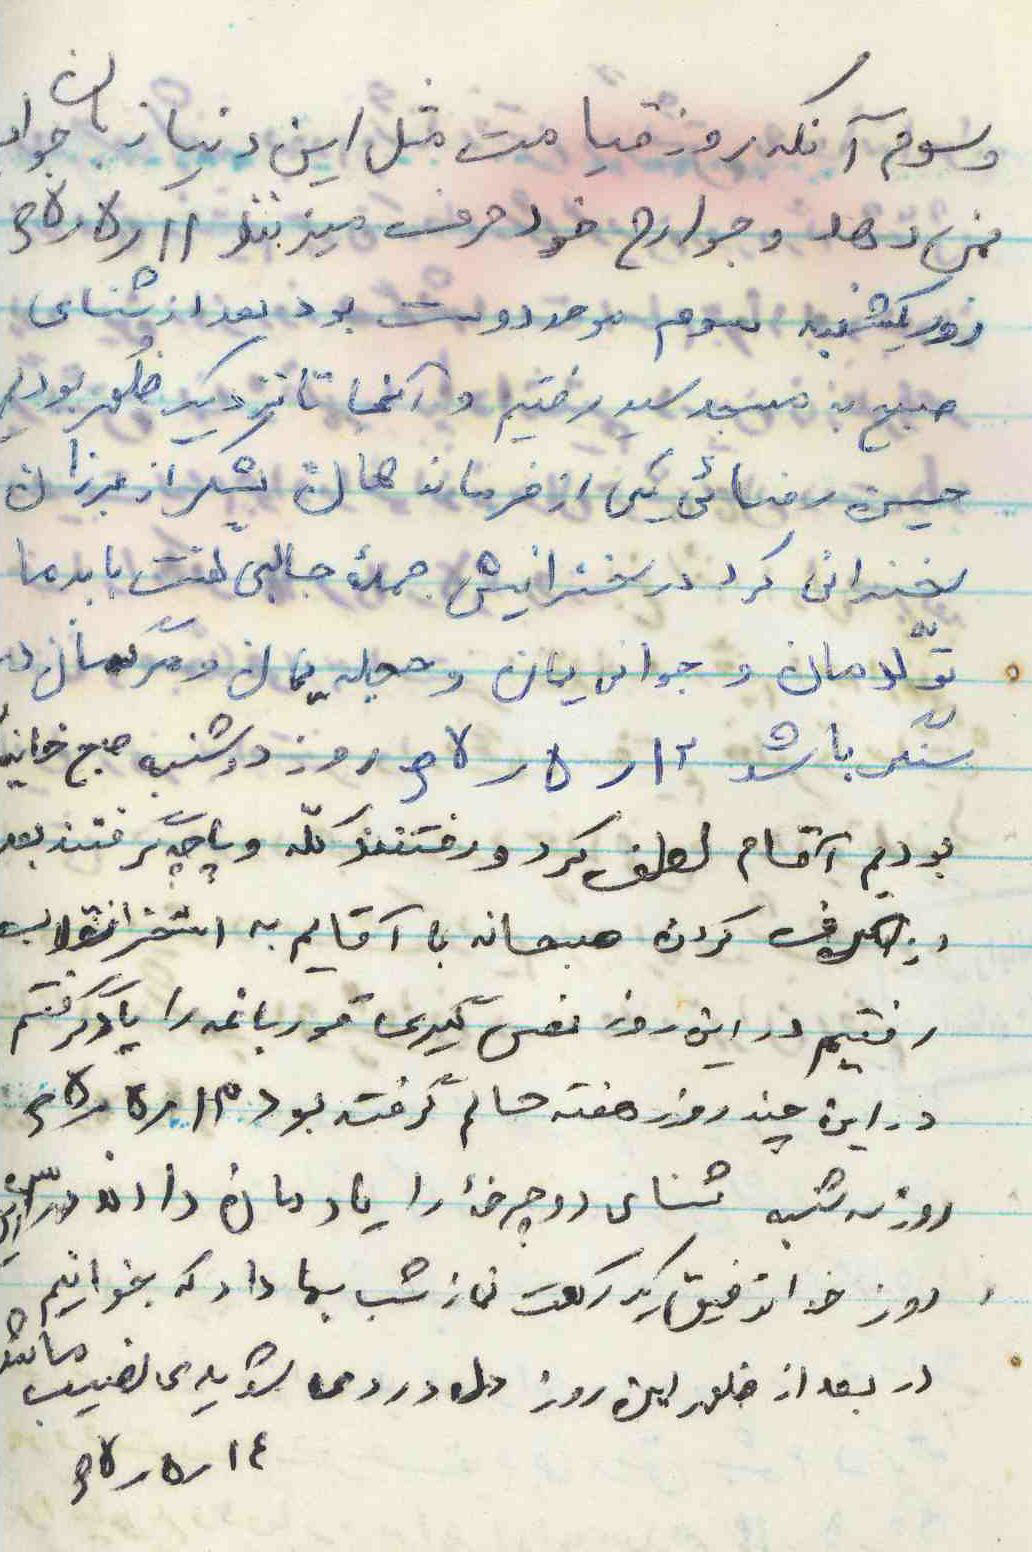 و سوم آنکه روز قیامت مثل این دنیا زبان جواب
نمی دهد و جوارح خود حرف میزنند ۱۱ر۵ر۶۵
روز یکشنبه سوم دوست بود بعد از شنای
صبح به مسجد سید رفتیم و آنجا تا نزدیک ظهر بودیم
حسین رضائی یکی از فرماندهان لشکر از عزیزان
سخنرانی کرد در سخنرانیش جملۀ جالبی گفت باید ما
تولّدمان و جوانی مان و حجله یمان و مرگمان در
سنگر باشد ۱۲ر۵ر۶۵ روز دوشنبه صبح خانه
بودیم آقام لطف کرد و رفتند کلّه و پاچه گرفتند بعد
از صرف کردن صبحانه با آقایم به استخر انقلاب
رفتیم در این روز نفس گیری قورباغه را یاد گرفتم
در این چند روز هفته حالم گرفته بود ۱۳ر۵ر۶۵
روز سه شنبه شنای دوچرخۀ را یادمان دادند در این
روز خدا توفیق یک رکعت نماز شب بما داد که بخوانیم
در بعد از ظهر این روز دل دردی شدیدی نصیب ما شد
۱٤ر۵ر۶۵